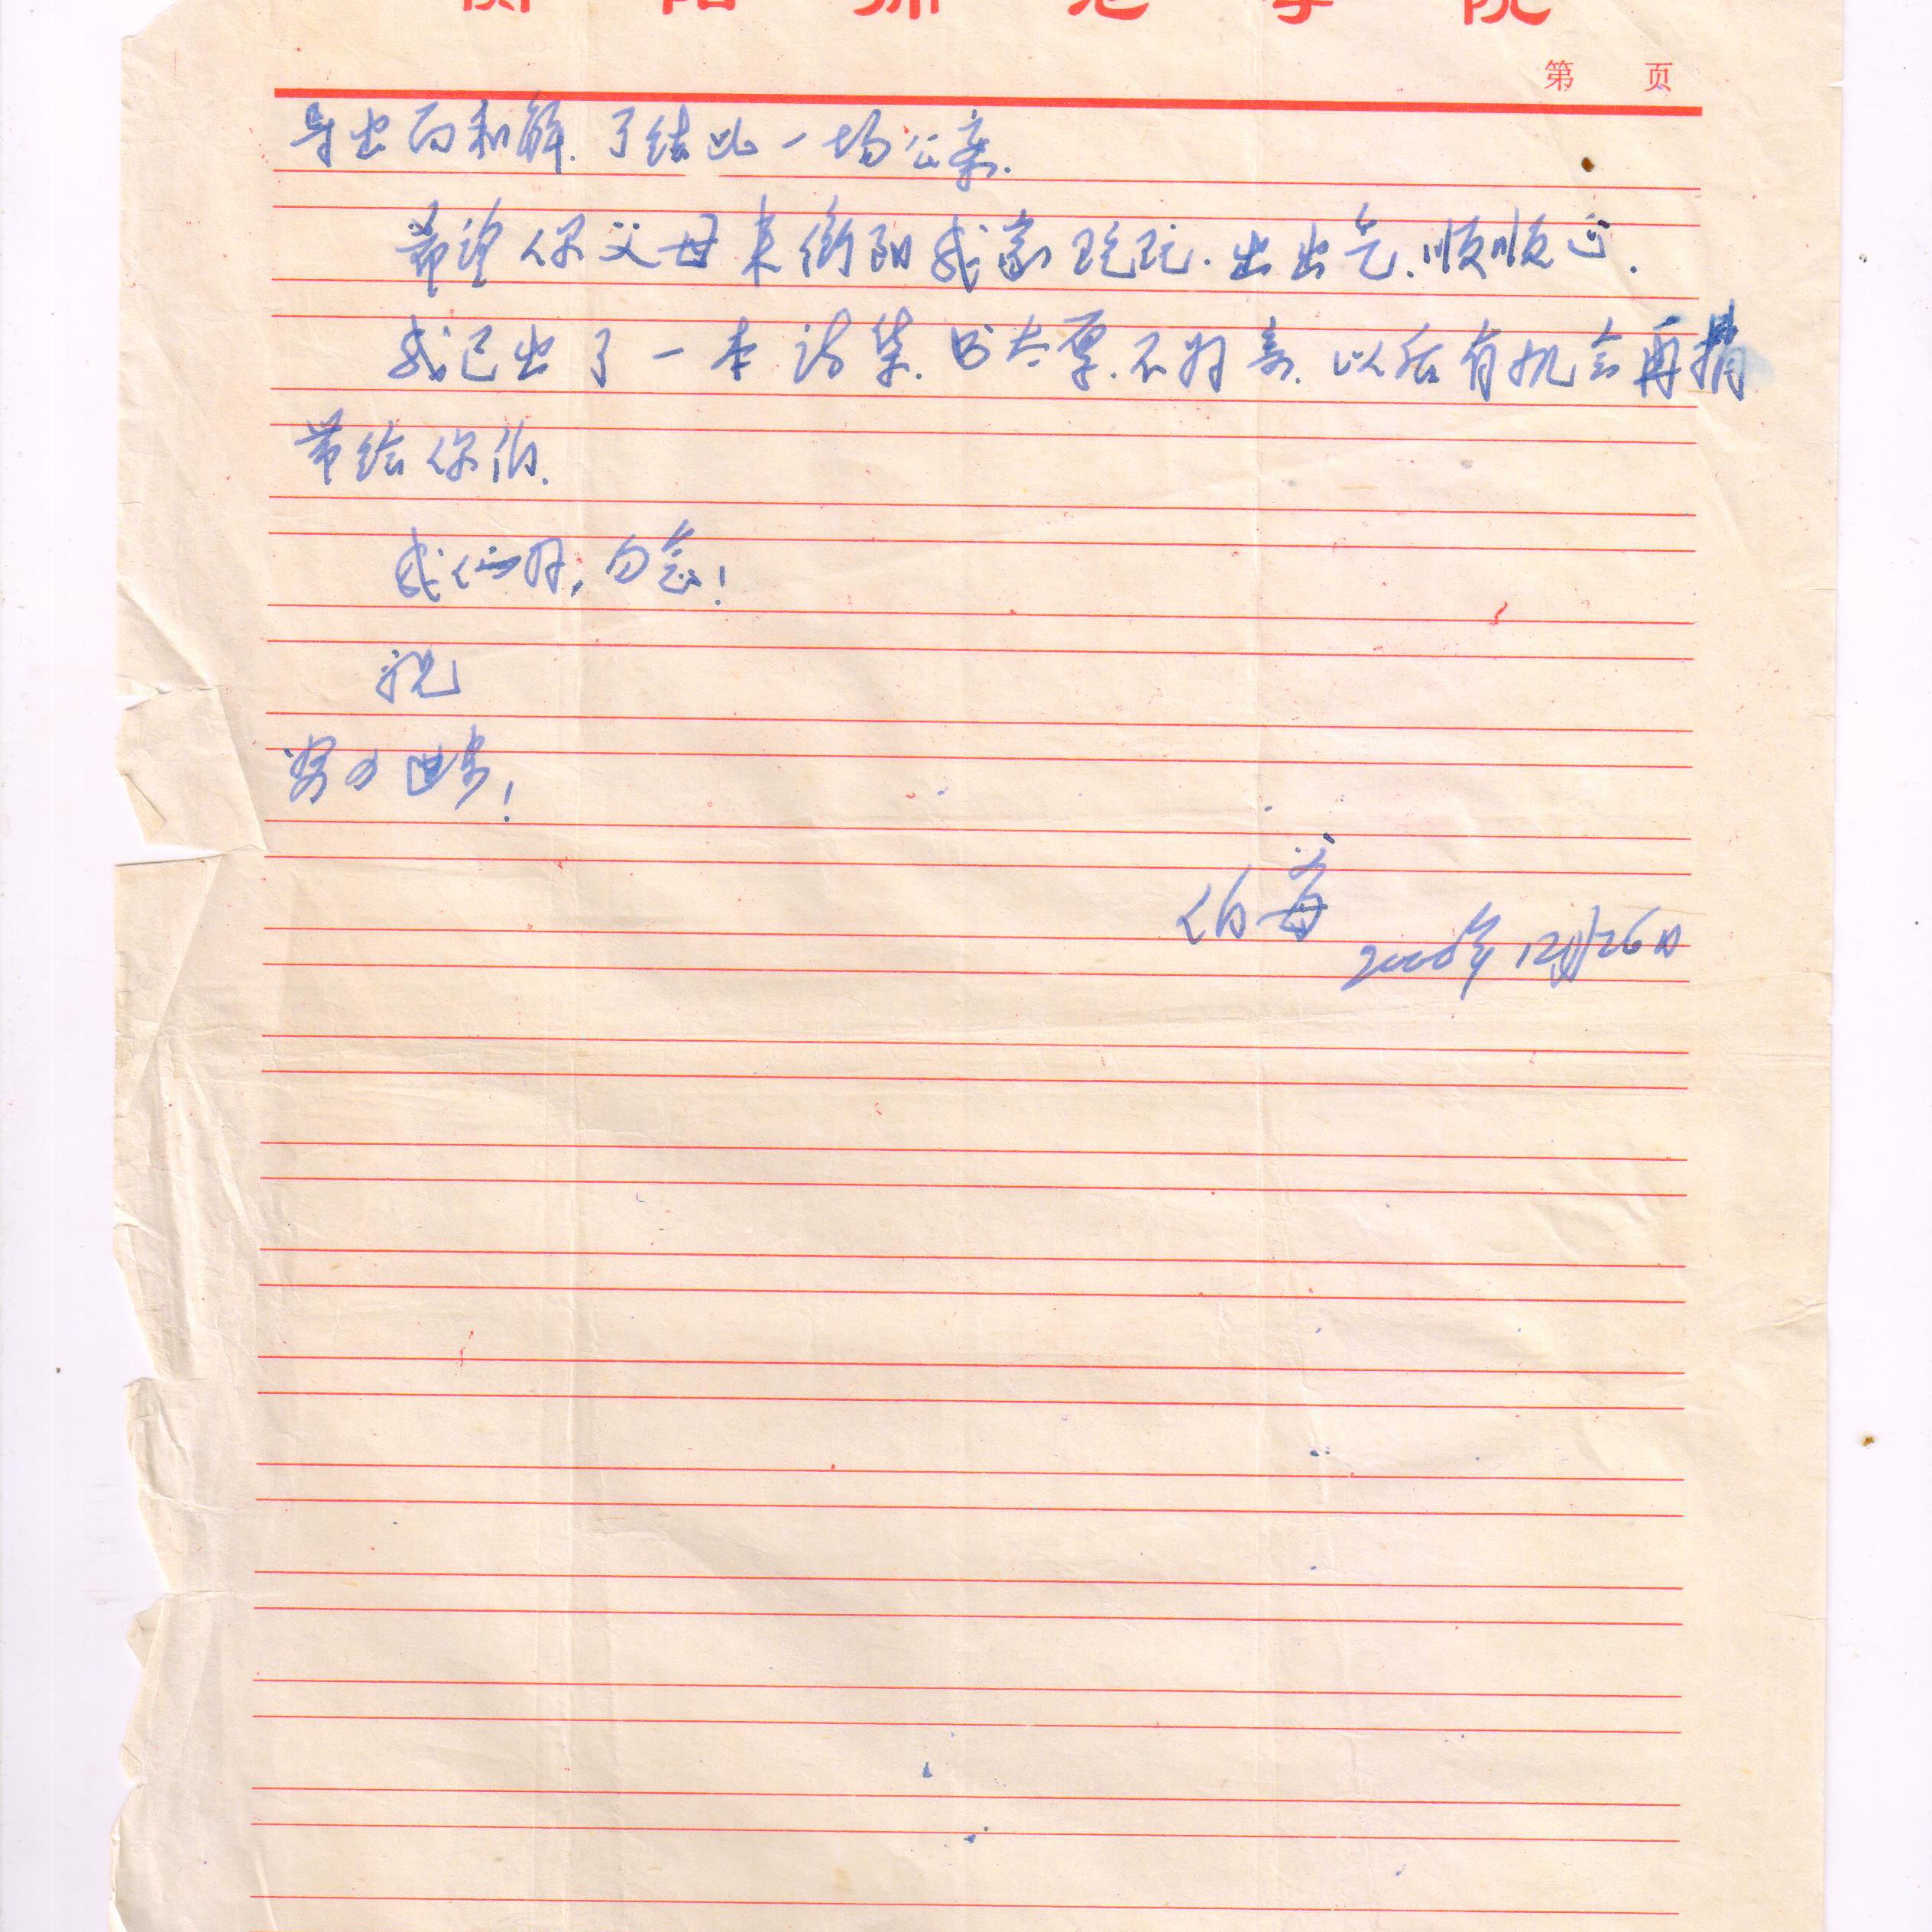 衡阳师范学院
第 页
导出而和解.了结此一场公案.
希望你父母来衡阳我家玩玩.出出气.顺顺心.
我已出了一本诗集.书太厚.不好寄.以后有机会再捎
带给你们.
我们好,勿念!
祝
努力进步!
伯
2000年12月26日